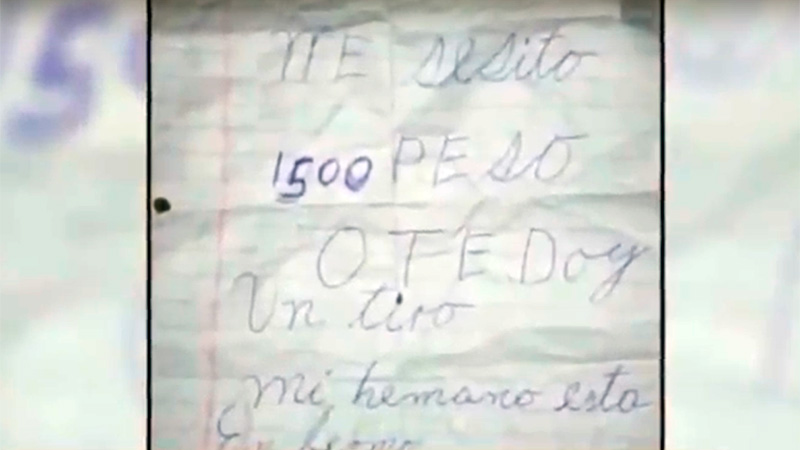 NE sesito
1500 PESO
O TE Doy
Un tiro
mi hemano esta
En